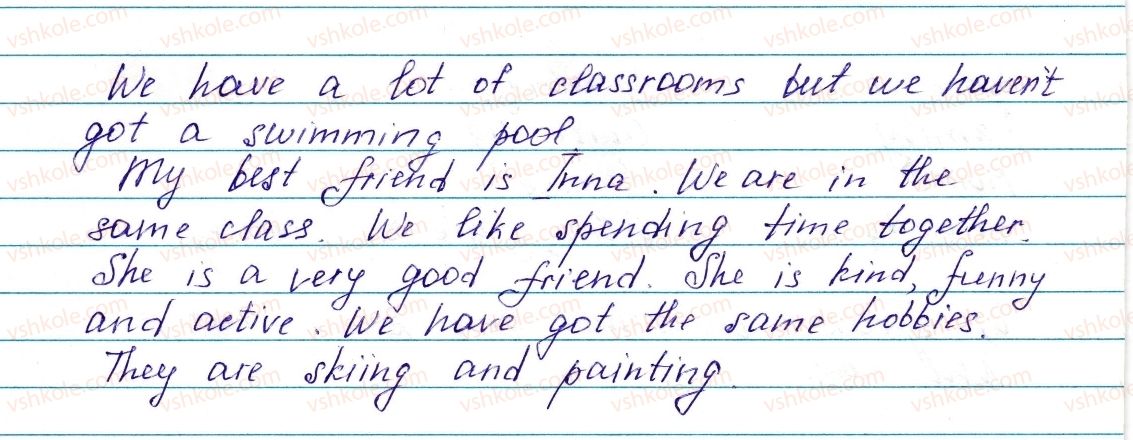 We have a lot of classrooms but we haven't
got a swimming pool.
My best friend is Inna. We are in the
same class. We like spending time together.
She is a very good friend. She is kind, funny
and active. We have got the same hobbies.
They are skiing and painting.